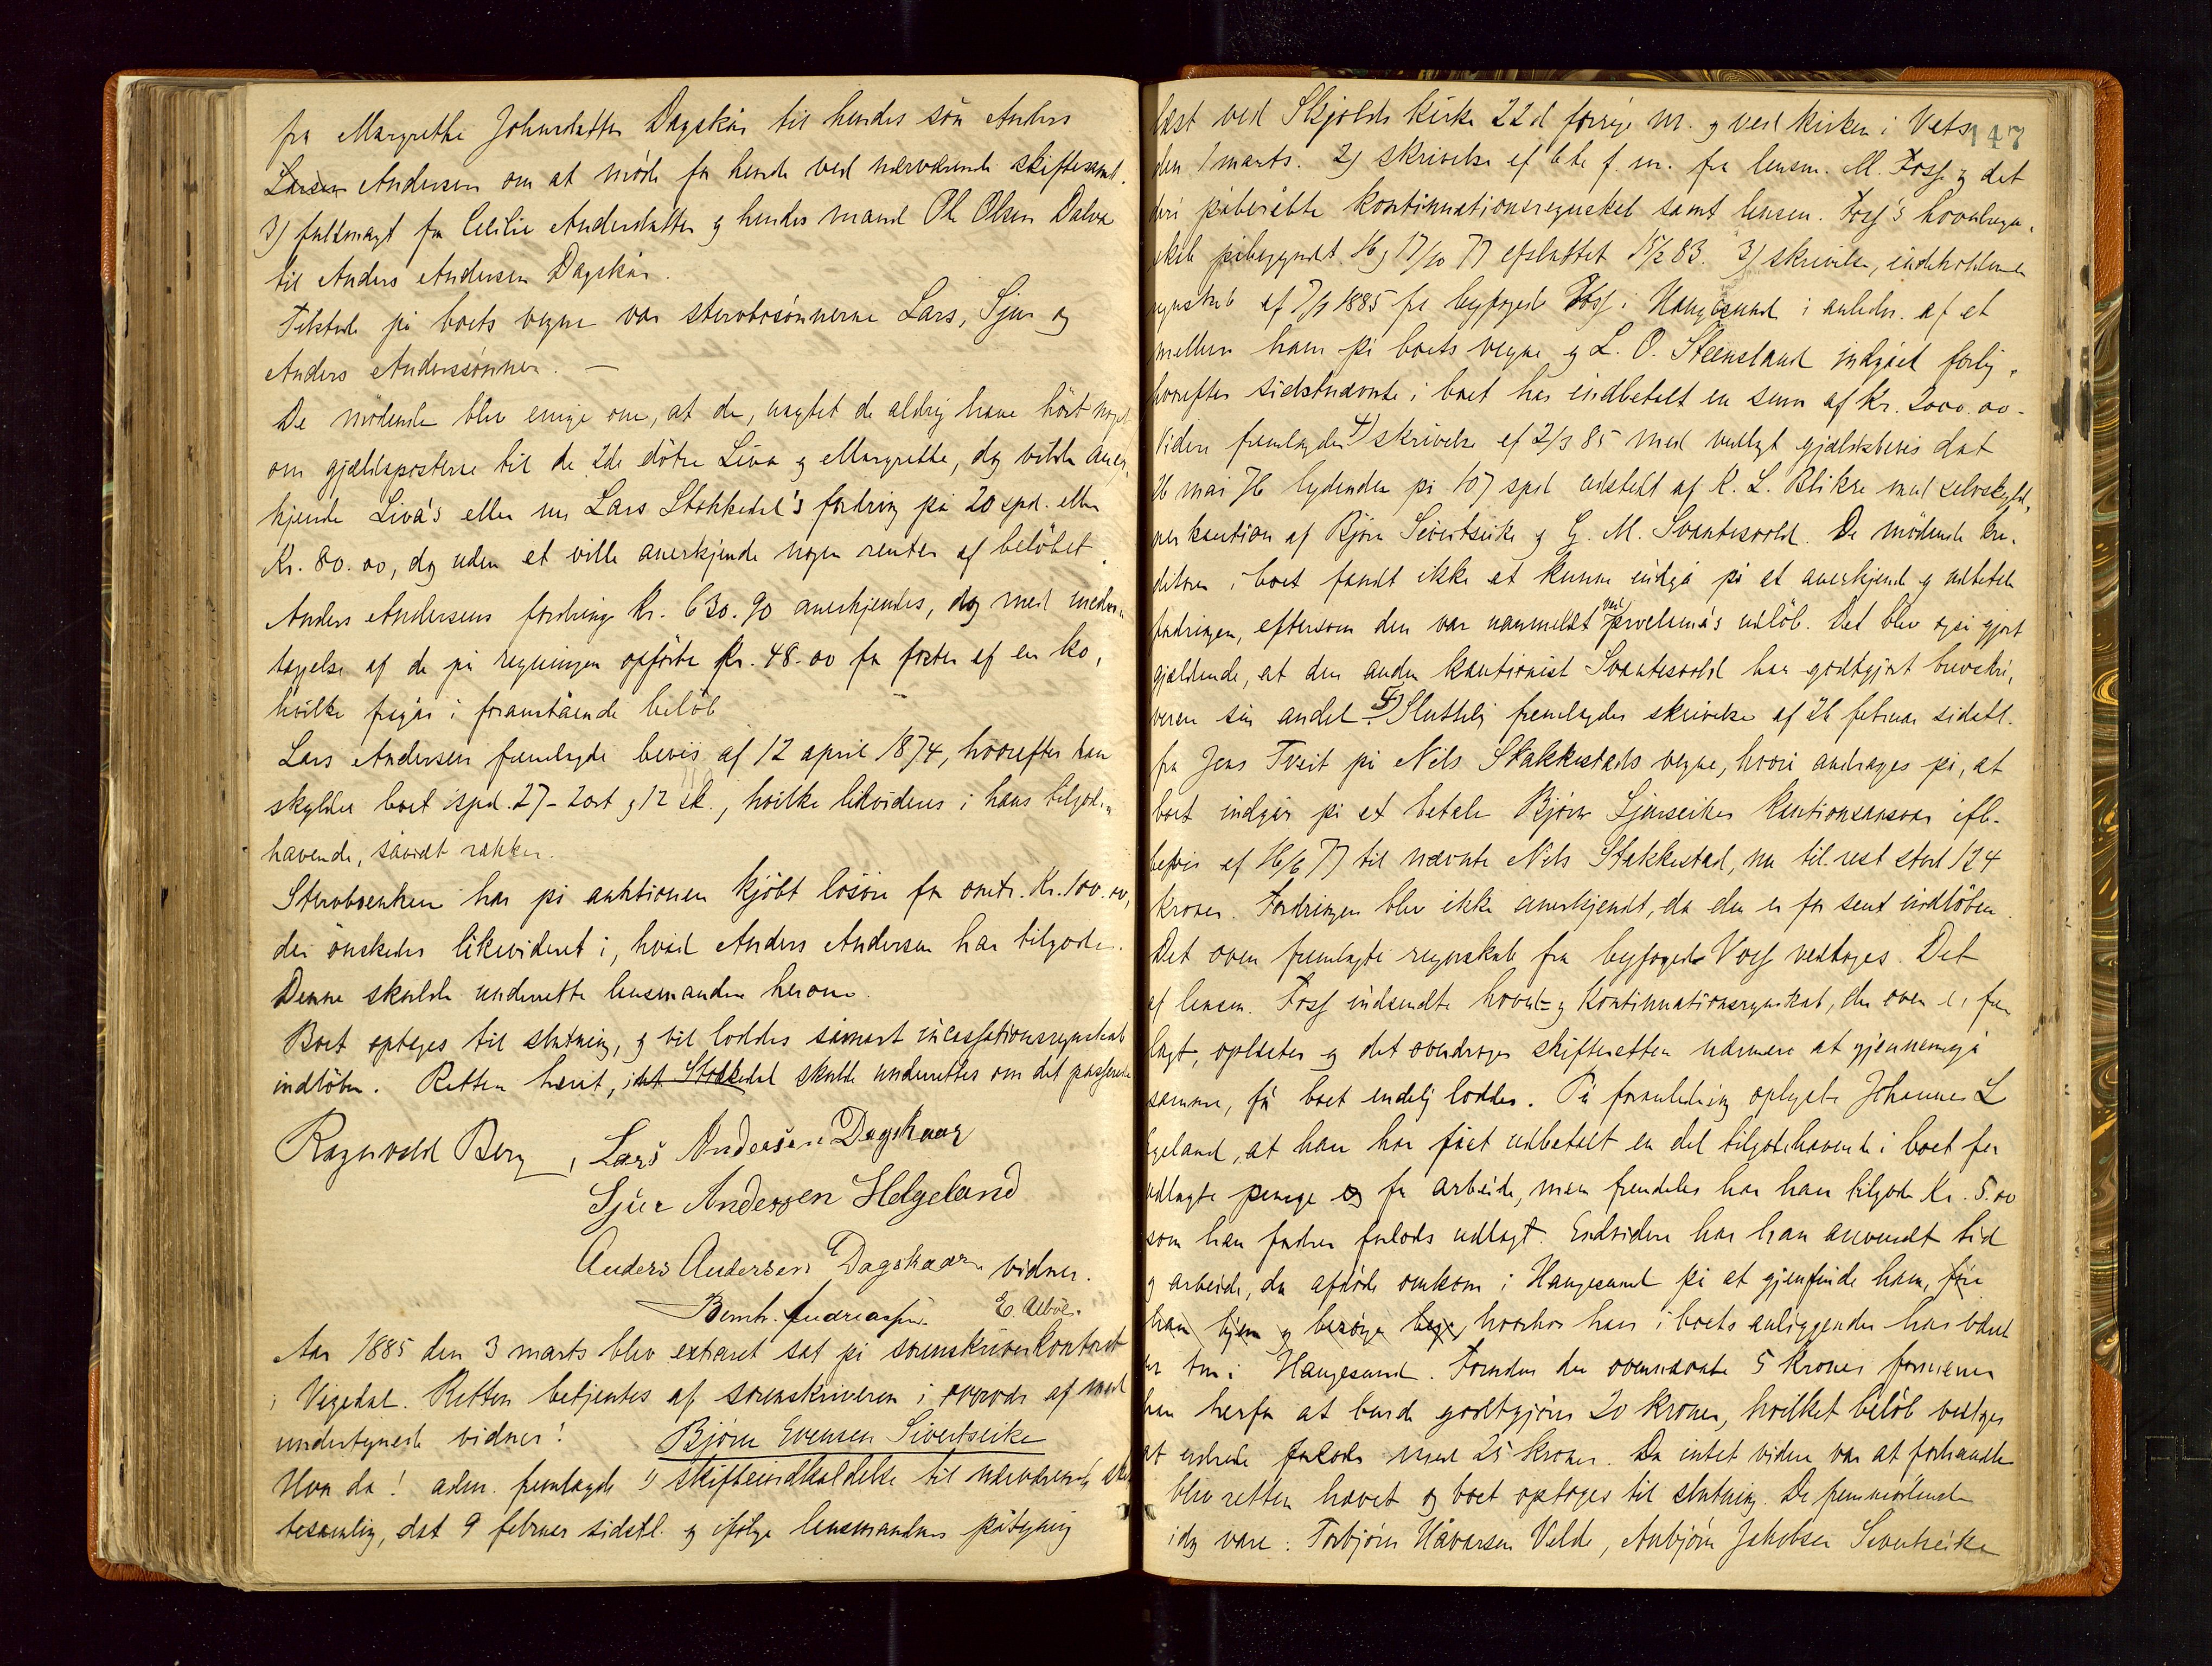 fra Margrethe Johnsdatter Dagskår til hendes sön Anders
Larsen Andersen om at möde for hende ved nærværende skiftesaml.
3) fuldmagt fra Cecilie Andersdatter og hendes mand Ole Olsen Dalva
til Anders Andersen Dagskår.
Tilstede på boets vegne var stervbosönnerne Lars, Sjur og
Anders Anderssönner. —
De mödende blev enige om, at de, uagtet de aldrig have hört noget
om gjældsposterne til de 2de dötre Liva og Margrethe, dog vilde aner,
kjende Liva's eller nu Lars Stokkedal's fordring på 20 spd. eller
Kr. 80.00, dog uden at ville anerkjende nogen renter af belöbet.
Anders Andersens fordring Kr. 630.90 anerkjendes, dog med undta-
gelse af de på regningen opförte Kr. 48.00 for foster af en ko,
hvilke fragår i foranstående belöb —
Lars Andersen fremlagde bevis af 12 april 1874, hvorefter han
skylder boet spd. 27 - 2 ort og 12 sk., hvilke likvideres i hans tilgode-
havende, såvidt rækker.
Stervboenken har på auktionen kjöbt lösöre for omtr. Kr. 100.00,
der önskedes likvideret i, hvad Anders Andersen har tilgode.
Denne skulde underrette lensmanden herom.
Boet optages til slutning, og vil loddes såsnart incassationsregnskab
indlöber. Retten hævet, idet Stokkedal skulde underrettes om det passerede
Ragnvald Berg, Lars Andersen Dagskaar
Sjur Andersen Helgeland
Anders Andersen Dagskaar vidner.
Bernh. Andreassen. E.
Aar 1885 den 3 marts blev extraret sat på sorenskriverkontoret
i Vigedal. Retten betjentes af sorenskriveren i overvær af med
undertegnede vidner!
Björn Evensen Sivertseike
Hvor da! adm. fremlagde 1) skifteindkaldelse til nærværende skifte
besamling, dat 9 februar sidstl. og ifölge lensmandens påtegning
147
læst ved Skjolds kirke 22d forrige m. og ved kirken i Vats
den 1 marts. 2) skrivelse af f. m. fra lensm. M. Foss og det
deri påberåbte kontinuationsregnskab samt lensm. Foss's hovedregn-
skab påbegyndt 16 og 17/10 77 afsluttet 15/2 83. 3) skrivelse, indeholdende
regnskab af 7/1 1885 fra byfoged Voss i Haugesund i anledn. af et
mellem ham på boets vegne og L. O. Steensland indgået forlig,
hvorefter sidstnævnte i boet har indbetalt en sum af Kr. 2000.00.
Videre fremlagdes 4) skrivelse af 2/3 85 med vedlagt gjældsbevis dat
26 mai 76 lydende på 107 spd udstedt af K. L. Blikre med selvskyld,
ner kaution af Björn Sivertseike og G. M. Svantesvold. De mödende kre-
ditorer i boet fandt ikke at kunne indgå på at anerkjende og udbetale
fordringen, eftersom den var uanmeldt ved proclama's udlöb. Det blev også gjort
gjældende, at den anden kautionist Svantesvold har godtgjort brevskri,
veren sin andel. 5) Sluttelig fremlagdes skrivelse af 26 februar sidstl.
fra Jens Tveit på Nils Stakkestads vegne, hvori andrages på, at
boet indgår på at betale Björn Sjurseikes kautionsansvar ifl.
bevis af 16/6 77 til nævnte Nils Stakkestad, nu til rest stod 124
Kroner. Fordringen blev ikke anerkjendt, da den er for sent indlöben.
Det oven fremlagte regnskab fra byfoged Voss vedtoges. Det
af lensm. Foss indsendte hoved- og kontinuationsregnskab, der oven er frem
lagt, oplæstes og det overdroges skifteretten nærmere at gjennemgå
samme, för boet endelig loddes. På foranledning oplyste Johannes L
geland, at han har fået udbetalt en del tilgodehavende i boet for
udlagte penge og for arbeide, men fremdeles har han tilgode Kr. 5.00
som han fordrer forlods udlagt. Endvidere har han anvendt tid
og arbeide, da afdöde omkom i Haugesund på at gjenfinde ham, före
ham hjem og besörge hvorhos han i boets anliggender har været
en tur i Haugesund. Foruden de ovennævnte 5 Kroner formener
han herfor at burde godtgjöres 20 Kroner, hvilket belöb vedtoges
at udrede forlods med 25 Kroner. Da intet videre var at forhandle
blev retten hævet og boet optoges til slutning. De fremmödende
idag vare: Torbjörn Håvarsen Velde, Anbjörn Jakobsen Sivertseike